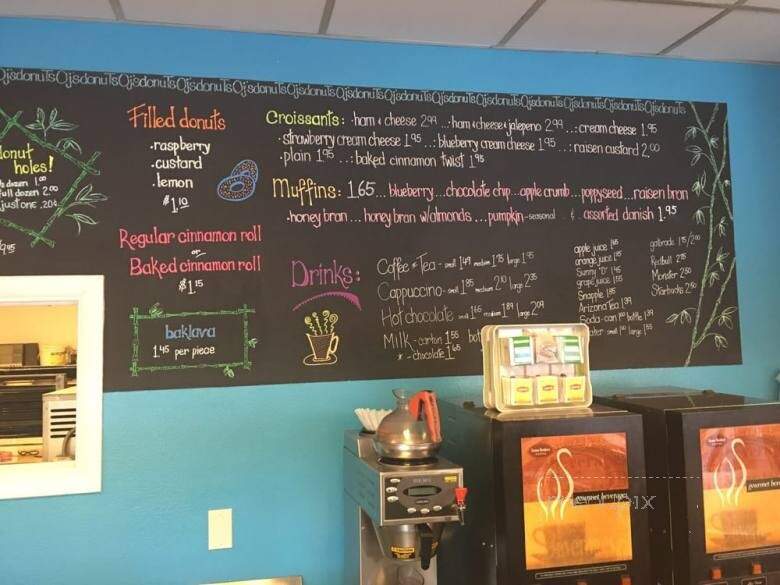 QjsdonutsQjsdonutsQjsdonutsQjsdonutsQjsdonutsQjsdonutsQjsdonutsQjsdonutsQjsdonutsQjsdonutsQjsdonuts
donut
holes!
½ dozen 1.00
full dozen 2.00
just one .20¢
Filled donuts
.raspberry
.custard
.lemon
$1.10
Regular cinnamon roll
or
Baked cinnamon roll
$1.15
baklava
1.45 per piece
Croissants: .ham & cheese 2.99 ...ham & cheese & jalepeno 2.99 ...: cream cheese 1.95
.strawberry cream cheese 1.95 ...: blueberry cream cheese 1.95 ...: raisen custard 2.00
.plain 1.95 ...: baked cinnamon twist 1.95
Muffins: 1.65 ... blueberry ...chocolate chip ...apple crumb ...poppyseed ...raisen bran
.honey bran ... honey bran w/almonds ...pumpkin-seasonal & assorted danish 1.95
Drinks:
Coffee & Tea - small 1.49 medium 1.75 large 1.95
Cappuccino - small 1.85 medium large 2.35
Hot chocolate small 1.65 medium 1.89 large 2.09
Milk - carton 1.55
- chocolate 1.65
apple juice
orange juice
Sunny "D"
grape juice
Snapple
Arizona Tea 1.39
Soda - can bottle 1.39
small large
gatorade 1.75/2.00
Redbull
Monster 2.50
Starbucks 2.50
gourmet beverages
gourmet bever